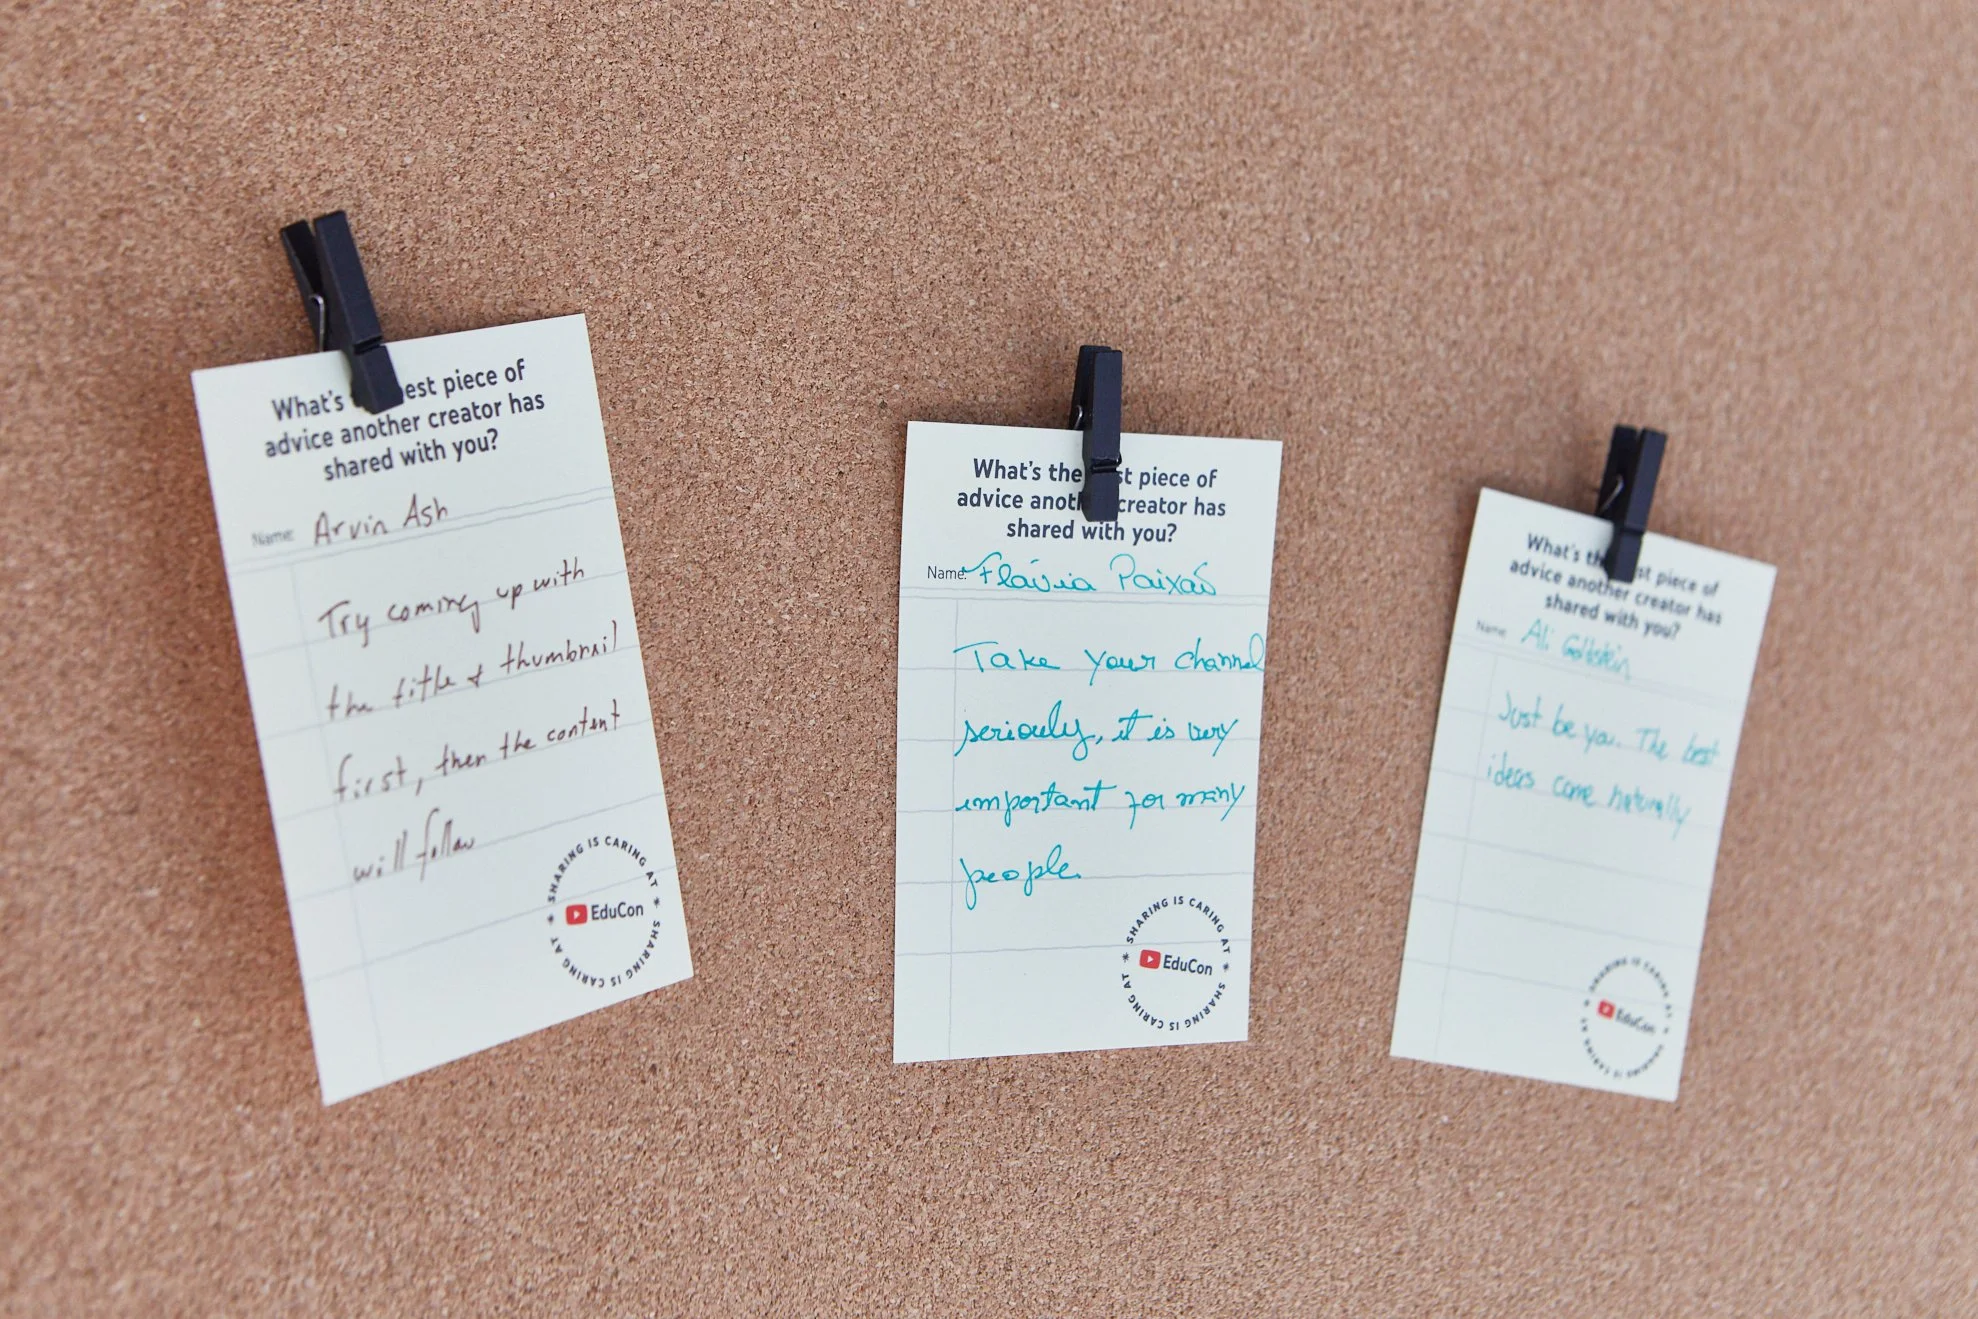 What's est piece of
advice another creator has
shared with you?
Name: Arvin Ash
Try coming up with
the title & thumbnail
first, then the content
will follow
SHARING IS CARING AT * SHARING IS CARING AT *
EduCon
What's the st piece of
advice anot creator has
shared with you?
Name: Flávia Paixão
Take your channel
seriously, it is very
important for many
people.
SHARING IS CARING AT * SHARING IS CARING AT *
EduCon
What's th st piece of
advice another creator has
shared with you?
Name: Ali Goldstein
Just be you. The best
ideas come naturally
SHARING IS CARING AT * SHARING IS CARING AT *
EduCon